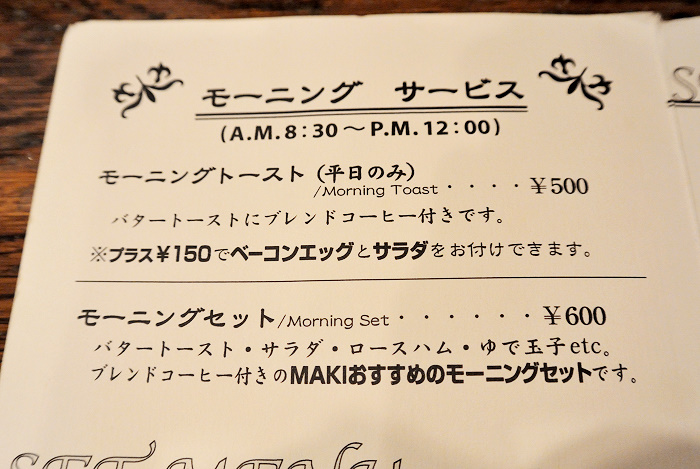 モーニング サービス
(A.M.8:30～P.M.12:00)
モーニングトースト (平日のみ)
/Morning Toast・・・・¥500
バタートーストにブレンドコーヒー付きです。
※プラス¥150でベーコンエッグとサラダをお付けできます。
モーニングセット/Morning Set・・・・・・¥600
バタートースト・サラダ・ロースハム・ゆで玉子etc。
ブレンドコーヒー付きのMAKIおすすめのモーニングセットです。
SET MENU